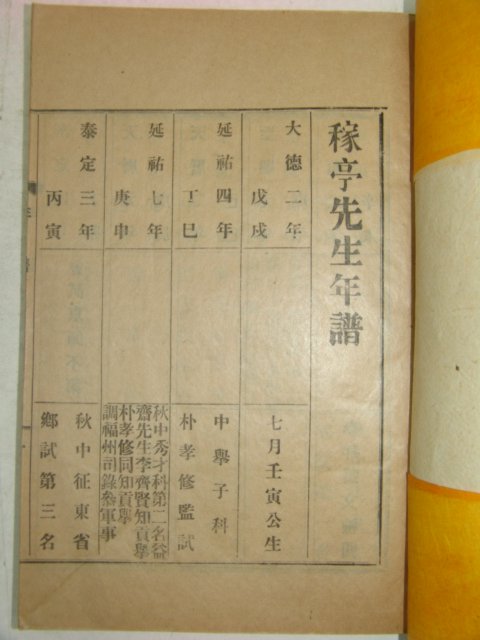 稼亭先生年譜
大德二年
戊戌
七月壬寅公生
延祐四年
丁巳
中擧子科
朴孝修監試
延祐七年
庚申
秋中秀才科第二名益
齋先生李齊賢知貢擧
朴孝修同知貢擧
調福州司錄叅軍事
泰定三年
丙寅
秋中征東省
鄕試第三名